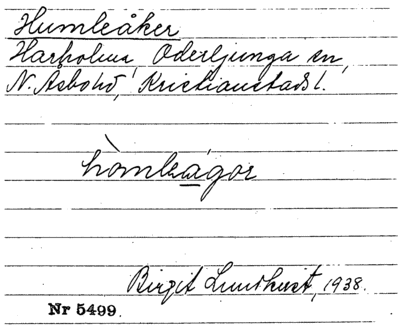 Humleåker
Harholma, Oderljunga sn,
N. Åsbo hd, Kristianstads l.
hòmleágor
Birgit Lundkvist, 1938.
Nr 5499.